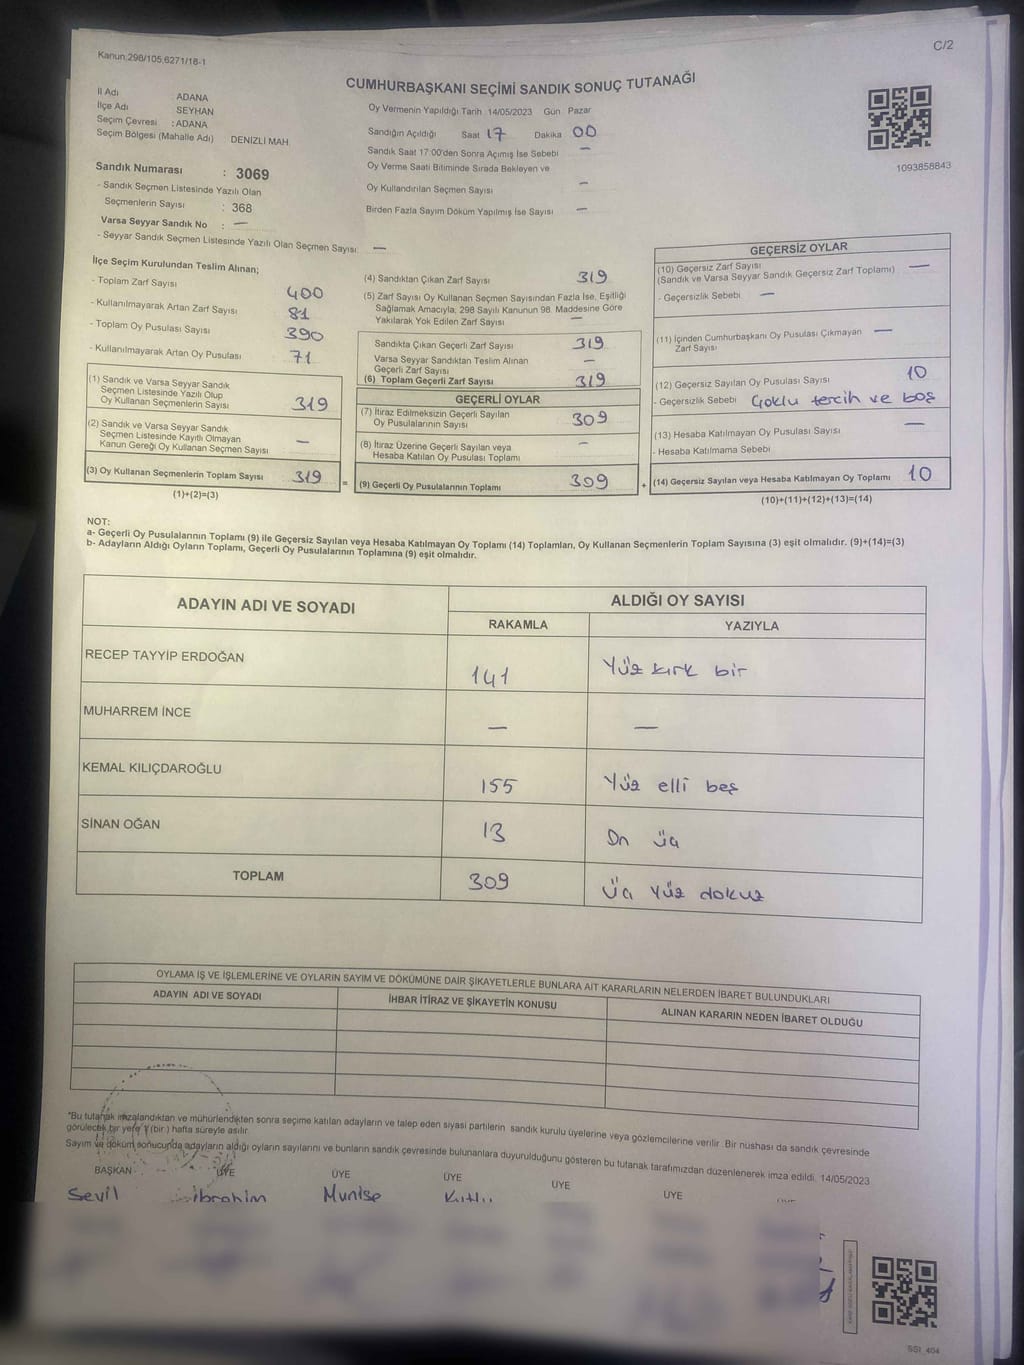 C/2
Kanun,298/105,6271/18-1
CUMHURBAŞKANI SEÇİMİ SANDIK SONUÇ TUTANAĞI
İl Adı : ADANA
İlçe Adı SEYHAN
Seçim Çevresi : ADANA
Seçim Bölgesi (Mahalle Adı) DENİZLİ MAH.
Sandık Numarası : 3069
- Sandık Seçmen Listesinde Yazılı Olan
Seçmenlerin Sayısı : 368
Varsa Seyyar Sandık No : —
- Seyyar Sandık Seçmen Listesinde Yazılı Olan Seçmen Sayısı: —
Oy Vermenin Yapıldığı Tarih 14/05/2023 Gün Pazar
Sandığın Açıldığı Saat 17 Dakika 00
Sandık Saat 17:00'den Sonra Açılmış İse Sebebi —
Oy Verme Saati Bitiminde Sırada Bekleyen ve
Oy Kullandırılan Seçmen Sayısı —
Birden Fazla Sayım Döküm Yapılmış İse Sayısı —
1093858843
İlçe Seçim Kurulundan Teslim Alınan;
- Toplam Zarf Sayısı 400
- Kullanılmayarak Artan Zarf Sayısı 81
- Toplam Oy Pusulası Sayısı 390
- Kullanılmayarak Artan Oy Pusulası 71
(1) Sandık ve Varsa Seyyar Sandık
Seçmen Listesinde Yazılı Olup
Oy Kullanan Seçmenlerin Sayısı 319
(2) Sandık ve Varsa Seyyar Sandık
Seçmen Listesinde Kayıtlı Olmayan
Kanun Gereği Oy Kullanan Seçmen Sayısı —
(3) Oy Kullanan Seçmenlerin Toplam Sayısı 319 =
(1)+(2)=(3)
(4) Sandıktan Çıkan Zarf Sayısı 319
(5) Zarf Sayısı Oy Kullanan Seçmen Sayısından Fazla İse, Eşitliği
Sağlamak Amacıyla, 298 Sayılı Kanunun 98. Maddesine Göre
Yakılarak Yok Edilen Zarf Sayısı —
Sandıkta Çıkan Geçerli Zarf Sayısı 319
Varsa Seyyar Sandıktan Teslim Alınan
Geçerli Zarf Sayısı —
(6) Toplam Geçerli Zarf Sayısı 319
GEÇERLİ OYLAR
(7) İtiraz Edilmeksizin Geçerli Sayılan
Oy Pusulalarının Sayısı 309
(8) İtiraz Üzerine Geçerli Sayılan veya
Hesaba Katılan Oy Pusulası Toplamı —
(9) Geçerli Oy Pusulalarının Toplamı 309 +
GEÇERSİZ OYLAR
(10) Geçersiz Zarf Sayısı
(Sandık ve Varsa Seyyar Sandık Geçersiz Zarf Toplamı) —
- Geçersizlik Sebebi —
(11) İçinden Cumhurbaşkanı Oy Pusulası Çıkmayan —
Zarf Sayısı
(12) Geçersiz Sayılan Oy Pusulası Sayısı 10
- Geçersizlik Sebebi Çoklu tercih ve boş
(13) Hesaba Katılmayan Oy Pusulası Sayısı —
- Hesaba Katılmama Sebebi
(14) Geçersiz Sayılan veya Hesaba Katılmayan Oy Toplamı 10
(10)+(11)+(12)+(13)=(14)
NOT:
a- Geçerli Oy Pusulalarının Toplamı (9) ile Geçersiz Sayılan veya Hesaba Katılmayan Oy Toplamı (14) Toplamları, Oy Kullanan Seçmenlerin Toplam Sayısına (3) eşit olmalıdır. (9)+(14)=(3)
b- Adayların Aldığı Oyların Toplamı, Geçerli Oy Pusulalarının Toplamına (9) eşit olmalıdır.
ADAYIN ADI VE SOYADI ALDIĞI OY SAYISI
RAKAMLA YAZIYLA
RECEP TAYYİP ERDOĞAN 141 Yüz kırk bir
MUHARREM İNCE — —
KEMAL KILIÇDAROĞLU 155 Yüz elli beş
SİNAN OĞAN 13 On üç
TOPLAM 309 Üç yüz dokuz
OYLAMA İŞ VE İŞLEMLERİNE VE OYLARIN SAYIM VE DÖKÜMÜNE DAİR ŞİKAYETLERLE BUNLARA AİT KARARLARIN NELERDEN İBARET BULUNDUKLARI
ADAYIN ADI VE SOYADI İHBAR İTİRAZ VE ŞİKAYETİN KONUSU ALINAN KARARIN NEDEN İBARET OLDUĞU
*Bu tutanak imzalandıktan ve mühürlendikten sonra seçime katılan adayların ve talep eden siyasi partilerin sandık kurulu üyelerine veya gözlemcilerine verilir. Bir nüshası da sandık çevresinde
görülecek bir yere 1 (bir) hafta süreyle asılır.
Sayım ve döküm sonucunda adayların aldığı oyların sayılarını ve bunların sandık çevresinde bulunanlara duyurulduğunu gösteren bu tutanak tarafımızdan düzenlenerek imza edildi. 14/05/2023
BAŞKAN ÜYE ÜYE ÜYE ÜYE ÜYE
Sevil İbrahim Munise
SSI_404